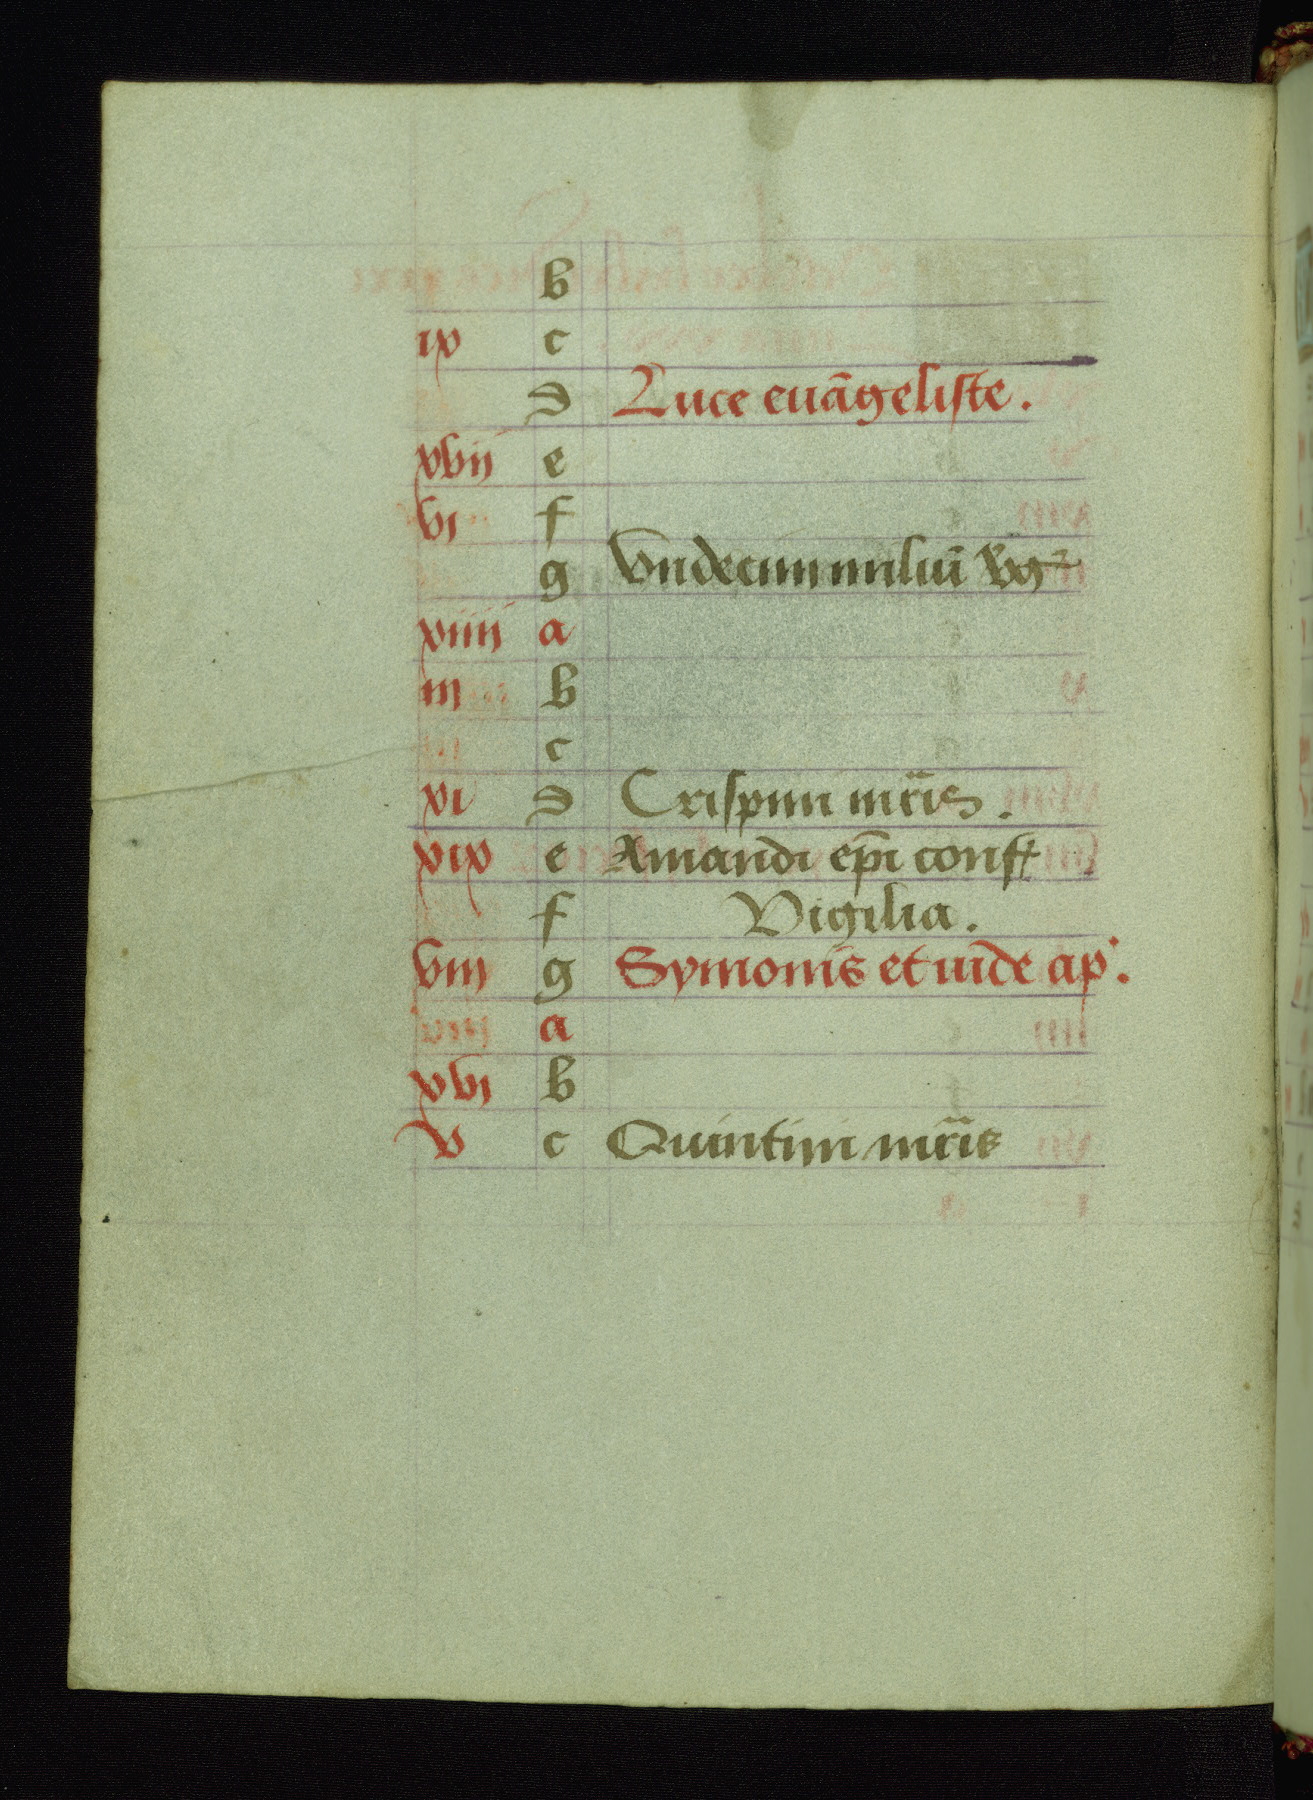 b
ix c
d Luce euãgeliste.
xvii e
vi f
g Vndecim miliũ v̾g
xiiii a
iii b
c
xi d Crispini mr̃is.
xix e Amandi ep̃i conf
f Vigilia.
viii g Symonis et iude ap̾.
a
xvi b
v c Quintini mr̃is